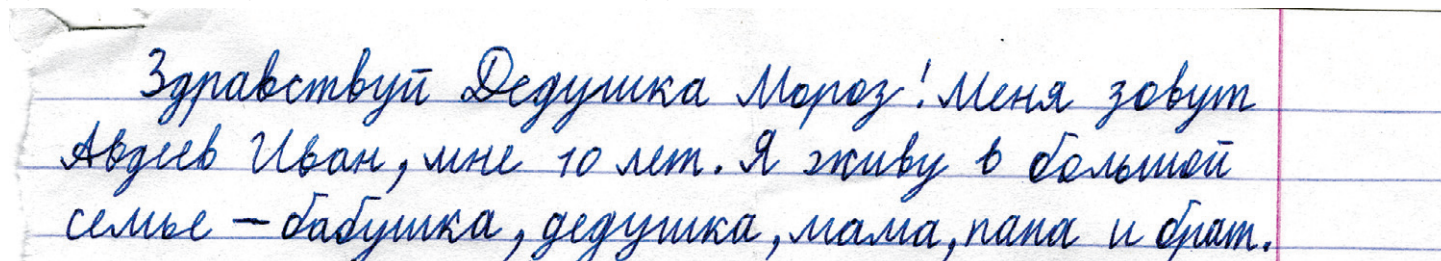 Здравствуй Дедушка Мороз! Меня зовут
Авдеев Иван, мне 10 лет. Я живу в большой
семье – бабушка, дедушка, мама, папа и брат.